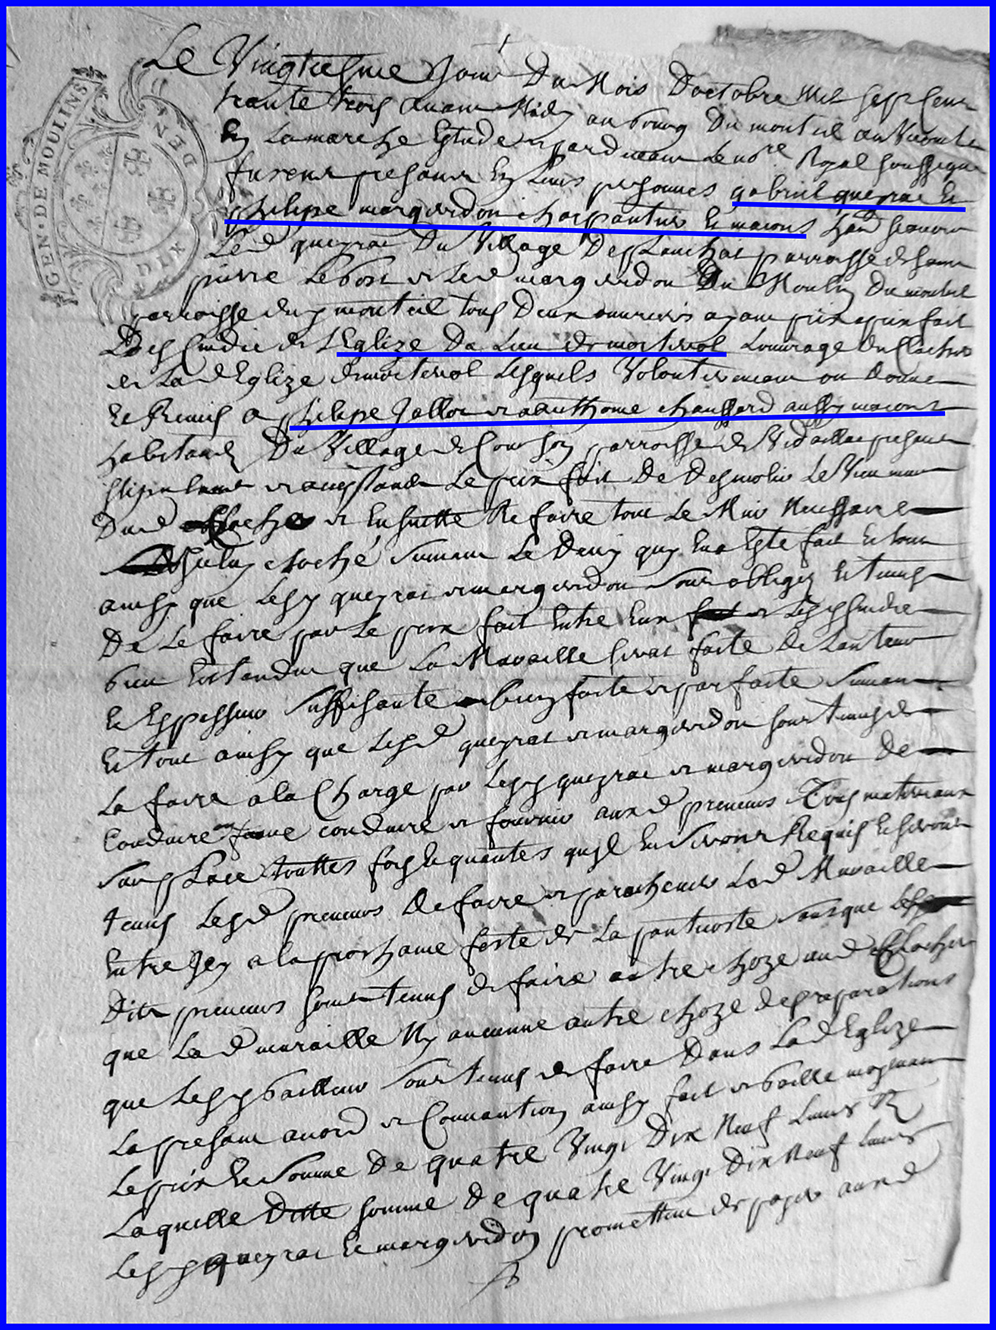 GEN · DE MOULINS
DEN
DIX
Le Vingtiesme Jour Du Mois Doctobre Mil sept cent
trante trois avant Midy au bourg Du monteil au Vicomte
En La marche Estude et pardevant Le nore Royal soussigne
furent presant En Leurs personnes gabriel queyrat Et
phelipe marquerdon charpantiers Et masons
Led queyrat Du Village De parroisse de saint
pierre Lebost et Led marquerdon Du Moulin Du monteil
parroisse dud monteil tous Deux ouvriers ayant pris a prix fait
Des sindic de L'Eglize Du Lieu de morterol Louvrage Du Clocher
et La d Eglize de morterol Lesquels Volonterement on Donne
Et Remis a phelipe Jallot et anthoine chaussard aussy masons
habitants Du Village de parroisse de Vidaillat presant
stipulant et aceptant Le prix fait De Desmolir Le Vieux
Dud et Ensuitte Refaire tout Le Mur Neccessaire
cloché suivant Le Devis quy En a Esté fait Et tout
ainsy que Lesd queyrat et marquerdon sont obligés Et tenus
De Le faire par Le prix fait Entre Eux et Lesd sindic
bien Entandu que La Muraille serat faite de
Et Esppesseur suffisante bien faite et parfaite suivant
Et tout ainsy que Lesd queyrat et marquerdon sont tenus de
La faire a la Charge par Lesd queyrat et marquerdon de
conduire ou faire conduire et fournir aux d preneurs materiaux
sur place touttes fois Et quantes quil En seront Requis Et seront
tenus Lesd preneurs De faire et parachever Lad Muraille
Entre Icy a la prochaine feste de La pantecoste sans que
Dits preneurs soient tenus de faire autre choze aud Clocher
que La d muraille Ny aucunne autre choze de preparations
que Lesd bailleurs sont tenus de faire Dans La d Eglize
La presant acord et Convantion ainsy fait et baille moyenant
Le prix Et somme De quatre Vingt Dix Neuf Livres
Laquelle Ditte somme De quatre Vingt Dix Neuf Livres
Lesd queyrat Et marquerdon promettent de payer aux d